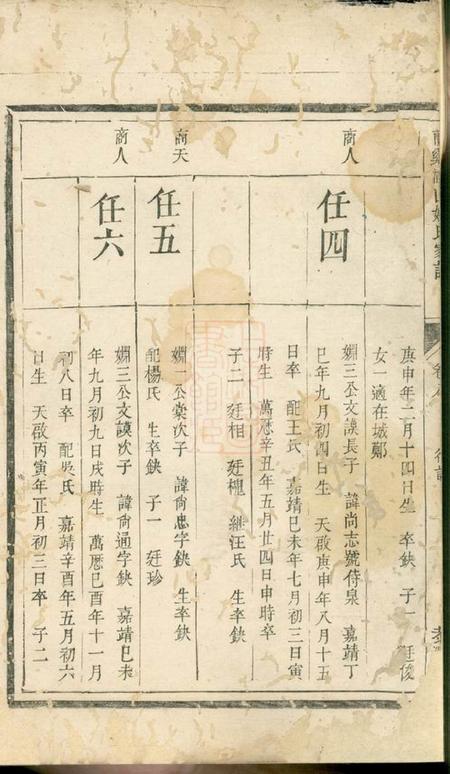 庚申年二月十四日生 卒鈌 子一 廷俊
女一適在城鄭
商人
任四
嫻三公文謨長子 諱尚志號侍泉 嘉靖丁
巳年九月初四日生 天啟庚申年八月十五
日卒 配王氏 嘉靖巳未年七月初三日寅
時生 萬厯辛丑年五月廿四日申時卒
子二 廷相 廷槐 繼汪氏 生卒鈌
商天
任五
嫻 公棠次子 諱尚忠字鈌 生卒鈌
配楊氏 生卒鈌 子一 廷珍
商人
任六
嫻三公文謨次子 諱尚通字鈌 嘉靖巳未
年九月初九日戌時生 萬厯巳酉年十一月
初八日卒 配吳氏 嘉靖辛酉年五月初六
日生 天啟丙寅年正月初三日卒 子二